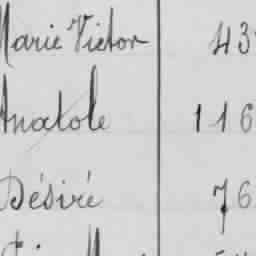 Marie Victor 43
Anatole 116
Désiré 76